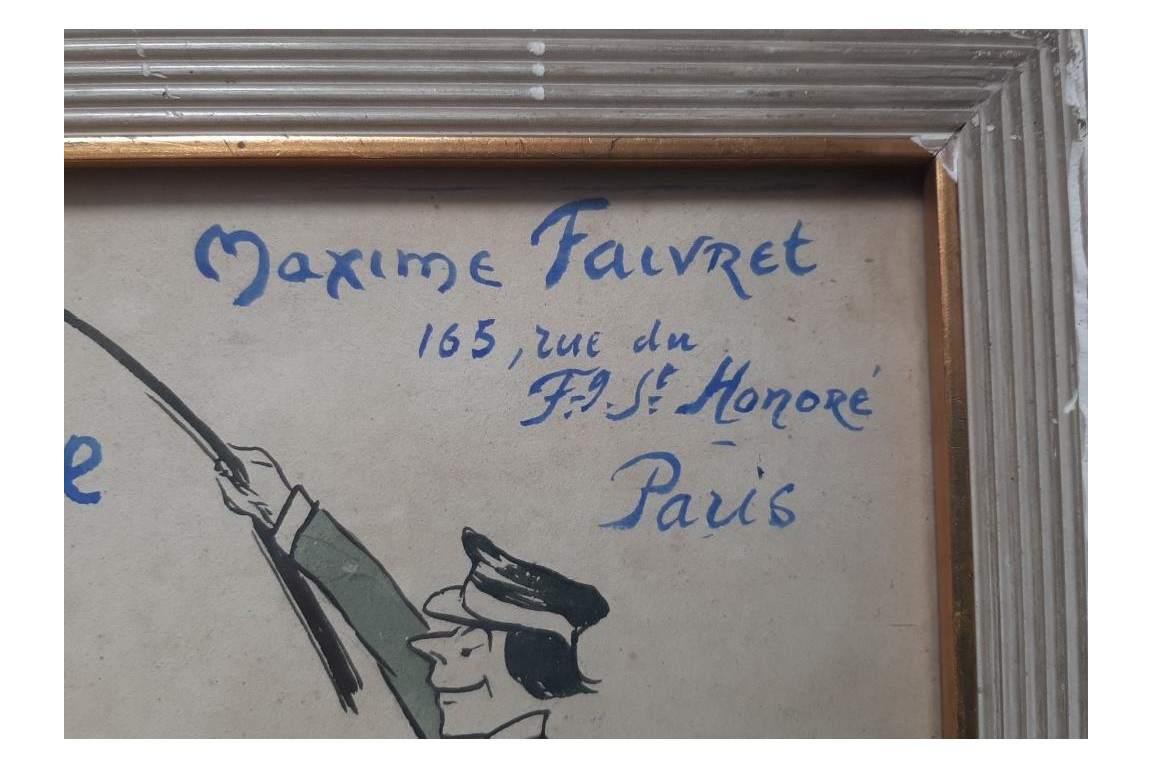 Maxime Faivret
165, rue du
Fg. St Honoré
Paris
e